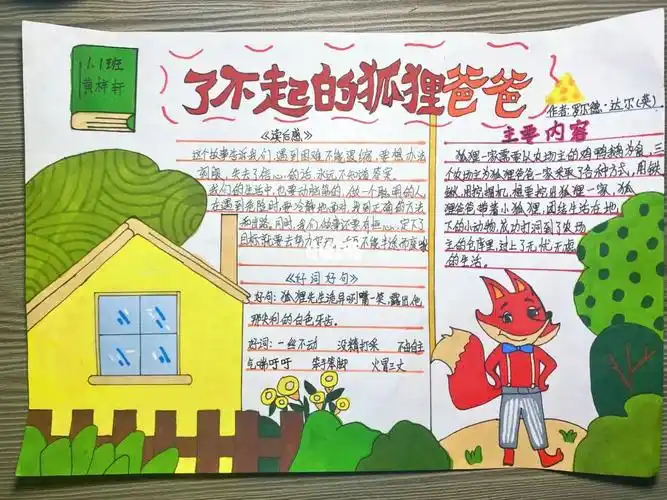 1.1班
黄梓轩
了不起的狐狸爸爸
作者:罗尔德·达尔(英)
《读后感》
这个故事告诉我们,遇到困难不能退缩,要想办法
克服,失去了信心的话,永远不知道答案。
我们的生活中,也要动脑筋的,做一个聪明的人
在遇到危险时,要冷静地面对,找到正确的方法
和道路。同时,我们做事还要有恒心,定下了
目标就要去努力学习,不能半途而废
《好词好句》
好句:狐狸先生诡异明嘴一笑,露出他
那尖利的白色牙齿。
好词:一丝不动 没精打采 不由自主
气喘吁吁 笨手笨脚 火冒三丈
主要内容
狐狸一家需要以农场主的鸡鸭鹅为食,三
个农场主为狐狸爸爸一家采取了各种方式,用铁
锹,用挖掘机,想要挖出狐狸一家,狐
狸爸爸带着小狐狸,团结生活在地
下的小动物,成功打洞到了农场
主的仓库里,过上了无忧无虑
的生活。